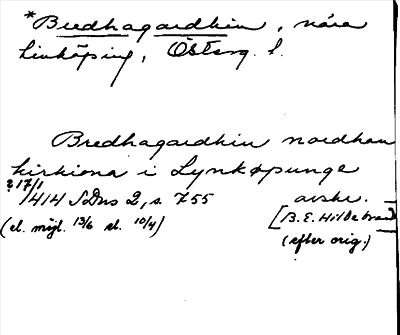 *Bredhagardhin, nära
Linköping, Österg. l.
Bredhagardhin nordhan
kirkiona i Lynkøpunge
? 17/1
1414 SDns 2, s. 755 avskr.
(el. møjl. 13/6 el. 10/4) [B.E. Hildebrand]
(efter orig.)